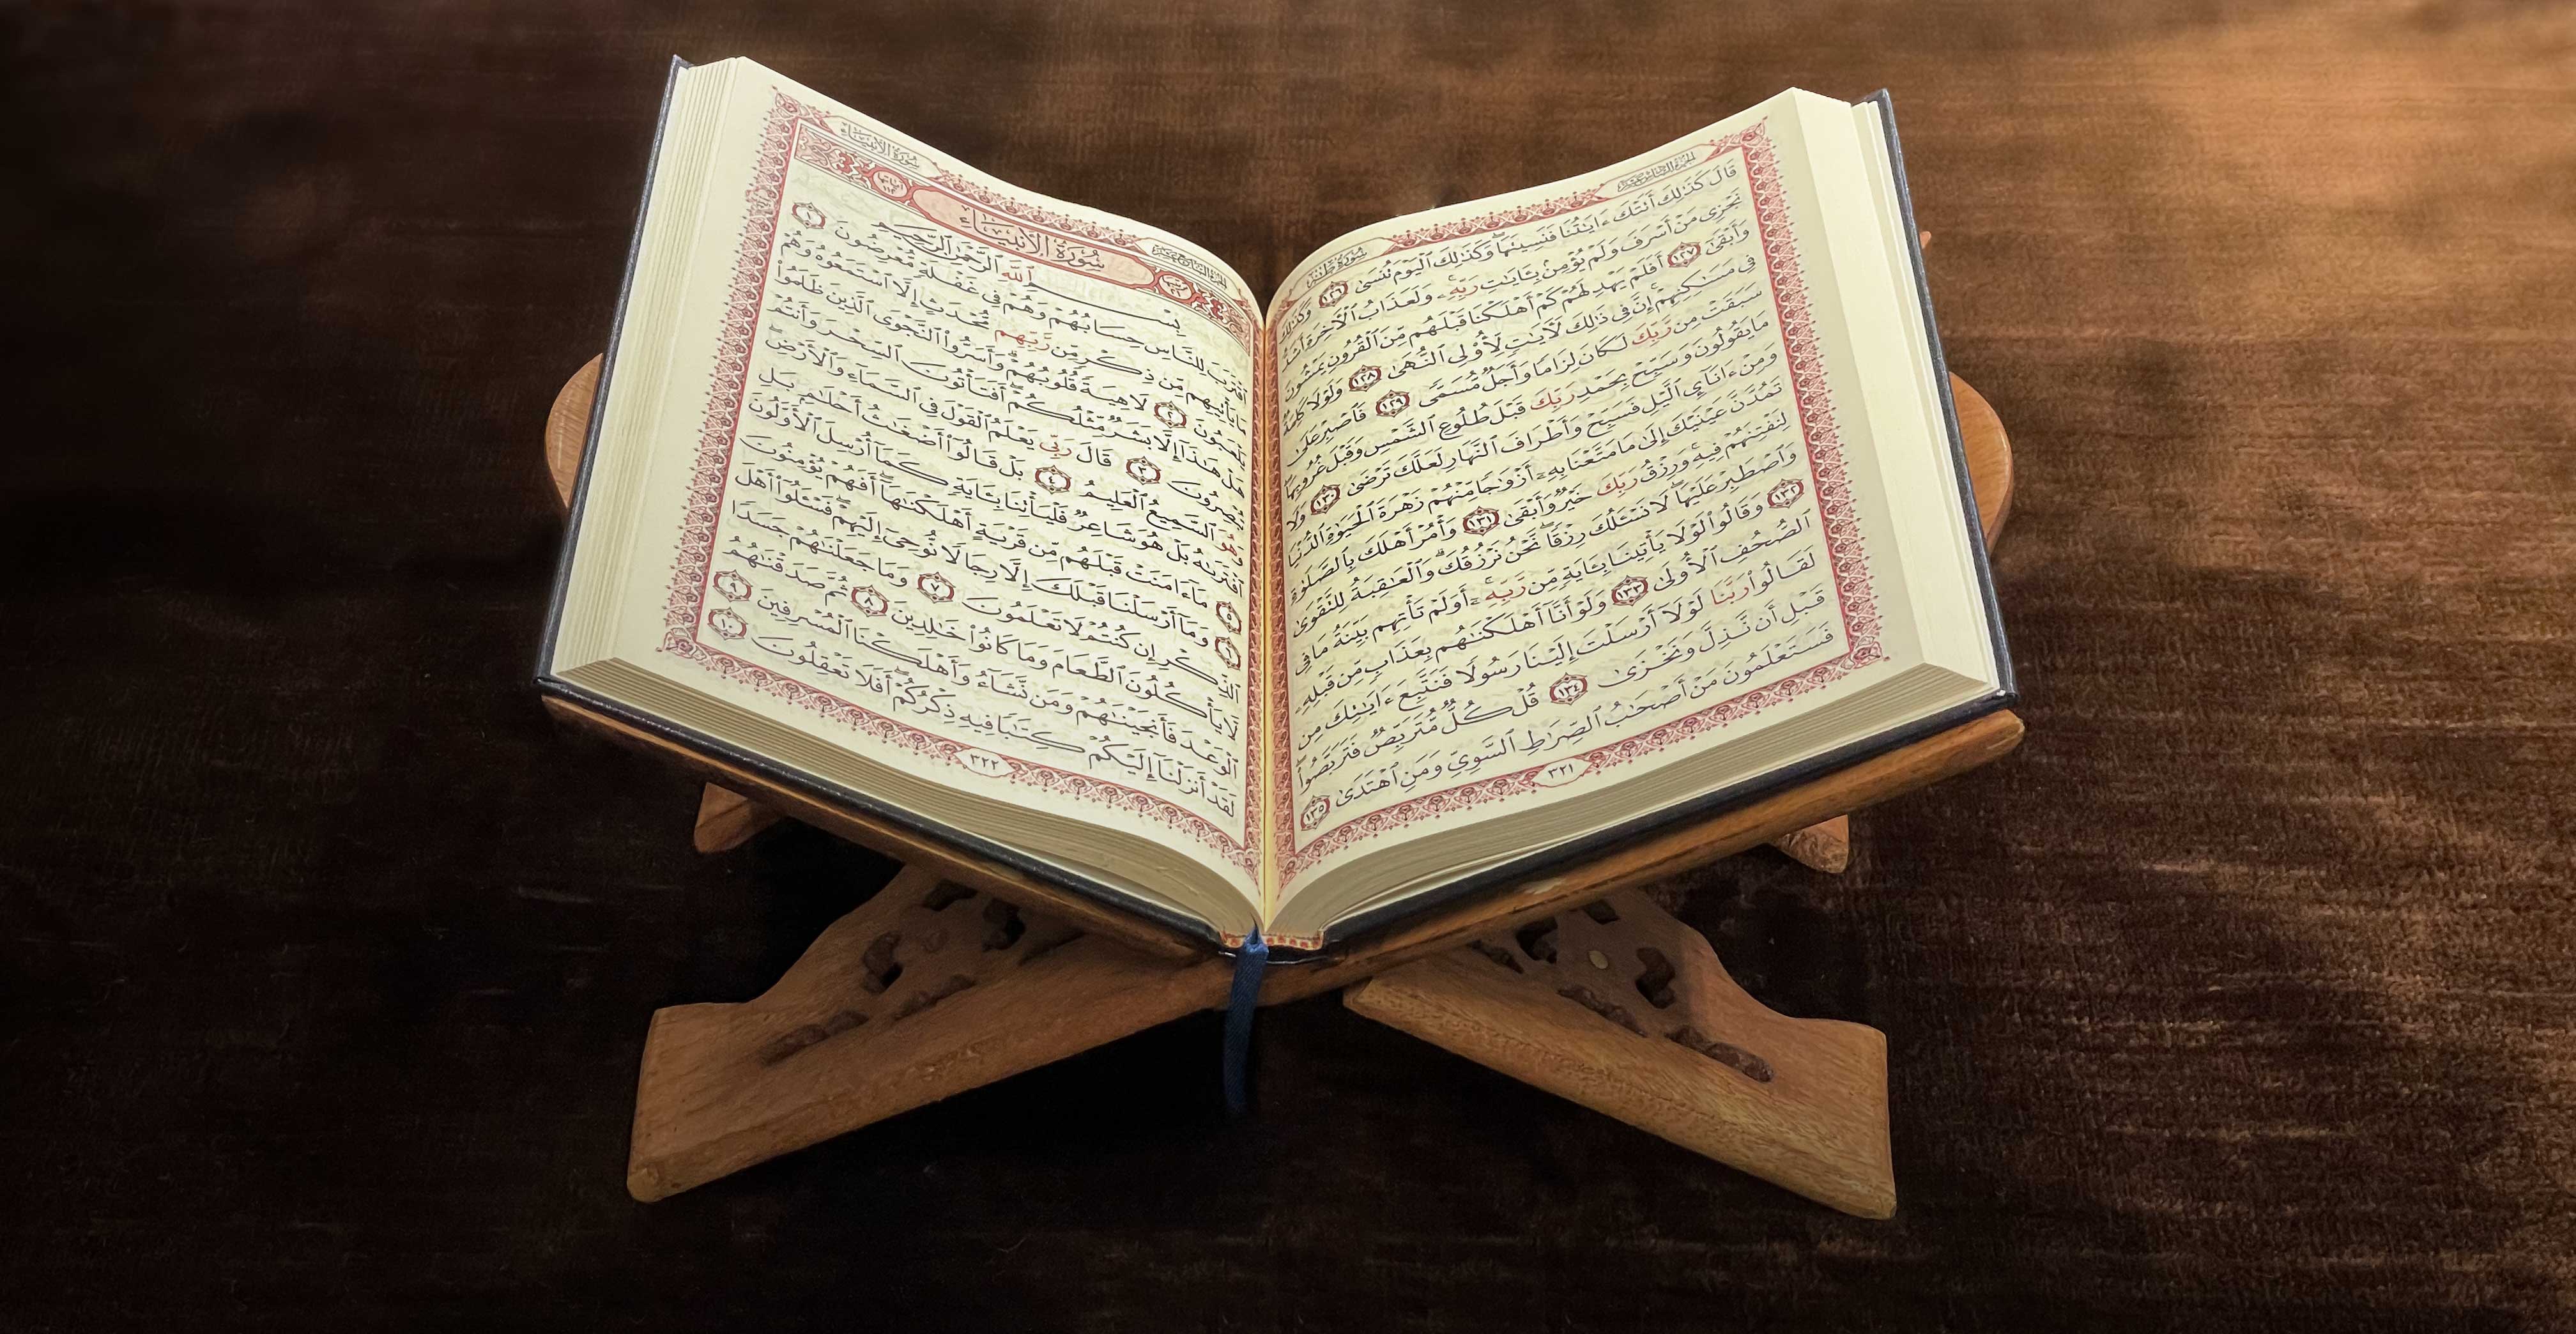 الجزء السادس عشر
سورة طه
قَالَ كَذَٰلِكَ أَتَتْكَ ءَايَٰتُنَا فَنَسِيتَهَا ۖ وَكَذَٰلِكَ ٱلْيَوْمَ تُنسَىٰ ١٢٦ وَكَذَٰلِكَ
نَجْزِى مَنْ أَسْرَفَ وَلَمْ يُؤْمِنۢ بِـَٔايَٰتِ رَبِّهِۦ ۚ وَلَعَذَابُ ٱلْـَٔاخِرَةِ أَشَدُّ
وَأَبْقَىٰٓ ١٢٧ أَفَلَمْ يَهْدِ لَهُمْ كَمْ أَهْلَكْنَا قَبْلَهُم مِّنَ ٱلْقُرُونِ يَمْشُونَ
فِى مَسَٰكِنِهِمْ ۗ إِنَّ فِى ذَٰلِكَ لَـَٔايَٰتٍ لِّأُو۟لِى ٱلنُّهَىٰ ١٢٨ وَلَوْلَا كَلِمَةٌ
سَبَقَتْ مِن رَّبِّكَ لَكَانَ لِزَامًا وَأَجَلٌ مُّسَمًّى ١٢٩ فَٱصْبِرْ عَلَىٰ
مَا يَقُولُونَ وَسَبِّحْ بِحَمْدِ رَبِّكَ قَبْلَ طُلُوعِ ٱلشَّمْسِ وَقَبْلَ غُرُوبِهَا
وَمِنْ ءَانَآئِ ٱلَّيْلِ فَسَبِّحْ وَأَطْرَافَ ٱلنَّهَارِ لَعَلَّكَ تَرْضَىٰ ١٣٠ وَلَا
تَمُدَّنَّ عَيْنَيْكَ إِلَىٰ مَا مَتَّعْنَا بِهِۦٓ أَزْوَٰجًا مِّنْهُمْ زَهْرَةَ ٱلْحَيَوٰةِ ٱلدُّنْيَا
لِنَفْتِنَهُمْ فِيهِ ۚ وَرِزْقُ رَبِّكَ خَيْرٌ وَأَبْقَىٰ ١٣١ وَأْمُرْ أَهْلَكَ بِٱلصَّلَوٰةِ
وَٱصْطَبِرْ عَلَيْهَا ۖ لَا نَسْـَٔلُكَ رِزْقًا ۖ نَّحْنُ نَرْزُقُكَ ۗ وَٱلْعَٰقِبَةُ لِلتَّقْوَىٰ
١٣٢ وَقَالُوا۟ لَوْلَا يَأْتِينَا بِـَٔايَةٍ مِّن رَّبِّهِۦٓ ۚ أَوَلَمْ تَأْتِهِم بَيِّنَةُ مَا فِى
ٱلصُّحُفِ ٱلْأُولَىٰ ١٣٣ وَلَوْ أَنَّآ أَهْلَكْنَٰهُم بِعَذَابٍ مِّن قَبْلِهِۦ
لَقَالُوا۟ رَبَّنَا لَوْلَآ أَرْسَلْتَ إِلَيْنَا رَسُولًا فَنَتَّبِعَ ءَايَٰتِكَ مِن
قَبْلِ أَن نَّذِلَّ وَنَخْزَىٰ ١٣٤ قُلْ كُلٌّ مُّتَرَبِّصٌ فَتَرَبَّصُوا۟ ۖ
فَسَتَعْلَمُونَ مَنْ أَصْحَٰبُ ٱلصِّرَٰطِ ٱلسَّوِىِّ وَمَنِ ٱهْتَدَىٰ ١٣٥
٣٢١
الجزء السابع عشر
سورة الأنبياء
سُورَةُ الأَنبِيَاءِ
آياتها ١١٢
بِسْمِ ٱللَّهِ ٱلرَّحْمَٰنِ ٱلرَّحِيمِ
ٱقْتَرَبَ لِلنَّاسِ حِسَابُهُمْ وَهُمْ فِى غَفْلَةٍ مُّعْرِضُونَ ١
مَا يَأْتِيهِم مِّن ذِكْرٍ مِّن رَّبِّهِم مُّحْدَثٍ إِلَّا ٱسْتَمَعُوهُ وَهُمْ
يَلْعَبُونَ ٢ لَاهِيَةً قُلُوبُهُمْ ۗ وَأَسَرُّوا۟ ٱلنَّجْوَى ٱلَّذِينَ ظَلَمُوا۟
هَلْ هَٰذَآ إِلَّا بَشَرٌ مِّثْلُكُمْ ۖ أَفَتَأْتُونَ ٱلسِّحْرَ وَأَنتُمْ
تُبْصِرُونَ ٣ قَالَ رَبِّى يَعْلَمُ ٱلْقَوْلَ فِى ٱلسَّمَآءِ وَٱلْأَرْضِ ۖ
وَهُوَ ٱلسَّمِيعُ ٱلْعَلِيمُ ٤ بَلْ قَالُوٓا۟ أَضْغَٰثُ أَحْلَٰمٍۭ بَلِ
ٱفْتَرَىٰهُ بَلْ هُوَ شَاعِرٌ فَلْيَأْتِنَا بِـَٔايَةٍ كَمَآ أُرْسِلَ ٱلْأَوَّلُونَ
٥ مَآ ءَامَنَتْ قَبْلَهُم مِّن قَرْيَةٍ أَهْلَكْنَٰهَآ ۖ أَفَهُمْ يُؤْمِنُونَ
٦ وَمَآ أَرْسَلْنَا قَبْلَكَ إِلَّا رِجَالًا نُّوحِىٓ إِلَيْهِمْ ۖ فَسْـَٔلُوٓا۟ أَهْلَ
ٱلذِّكْرِ إِن كُنتُمْ لَا تَعْلَمُونَ ٧ وَمَا جَعَلْنَٰهُمْ جَسَدًا
لَّا يَأْكُلُونَ ٱلطَّعَامَ وَمَا كَانُوا۟ خَٰلِدِينَ ٨ ثُمَّ صَدَقْنَٰهُمُ
ٱلْوَعْدَ فَأَنجَيْنَٰهُمْ وَمَن نَّشَآءُ وَأَهْلَكْنَا ٱلْمُسْرِفِينَ ٩
لَقَدْ أَنزَلْنَآ إِلَيْكُمْ كِتَٰبًا فِيهِ ذِكْرُكُمْ ۖ أَفَلَا تَعْقِلُونَ ١٠
٣٢٢